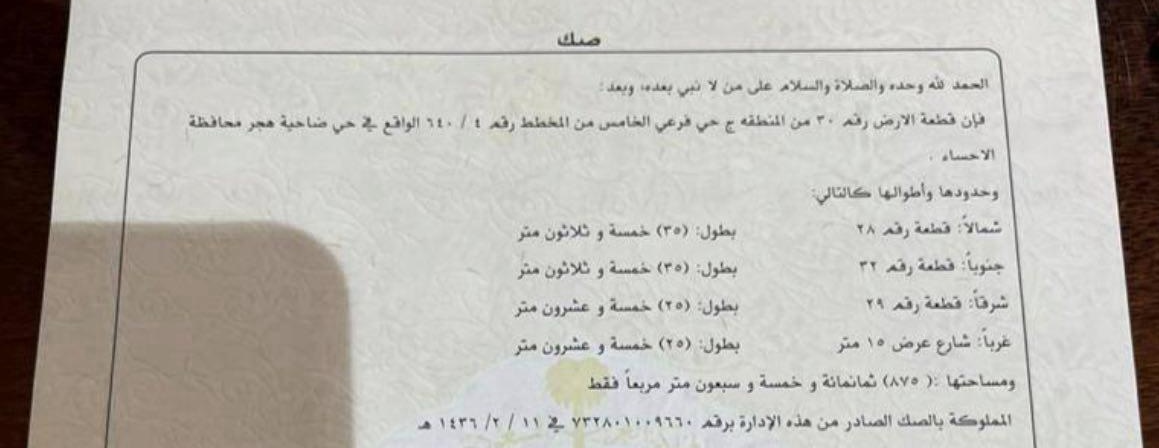 صك
الحمد لله وحده والصلاة والسلام على من لا نبي بعده، وبعد:
فإن قطعة الارض رقم ٣٠ من المنطقه ج حي فرعي الخامس من المخطط رقم ٤ / ٦٤٠ الواقع في حي ضاحية هجر محافظة
الاحساء .
وحدودها وأطوالها كالتالي:
شمالاً: قطعة رقم ٢٨ بطول: (٣٥) خمسة و ثلاثون متر
جنوباً: قطعة رقم ٣٢ بطول: (٣٥) خمسة و ثلاثون متر
شرقاً: قطعة رقم ٢٩ بطول: (٢٥) خمسة و عشرون متر
غرباً: شارع عرض ١٥ متر بطول: (٢٥) خمسة و عشرون متر
ومساحتها :( ٨٧٥) ثمانمائة و خمسة و سبعون متر مربعاً فقط
المملوكة بالصك الصادر من هذه الإدارة برقم ٧٣٢٨٠١٠٠٩٦٦٠ في ١١ / ٢ / ١٤٣٦ هـ